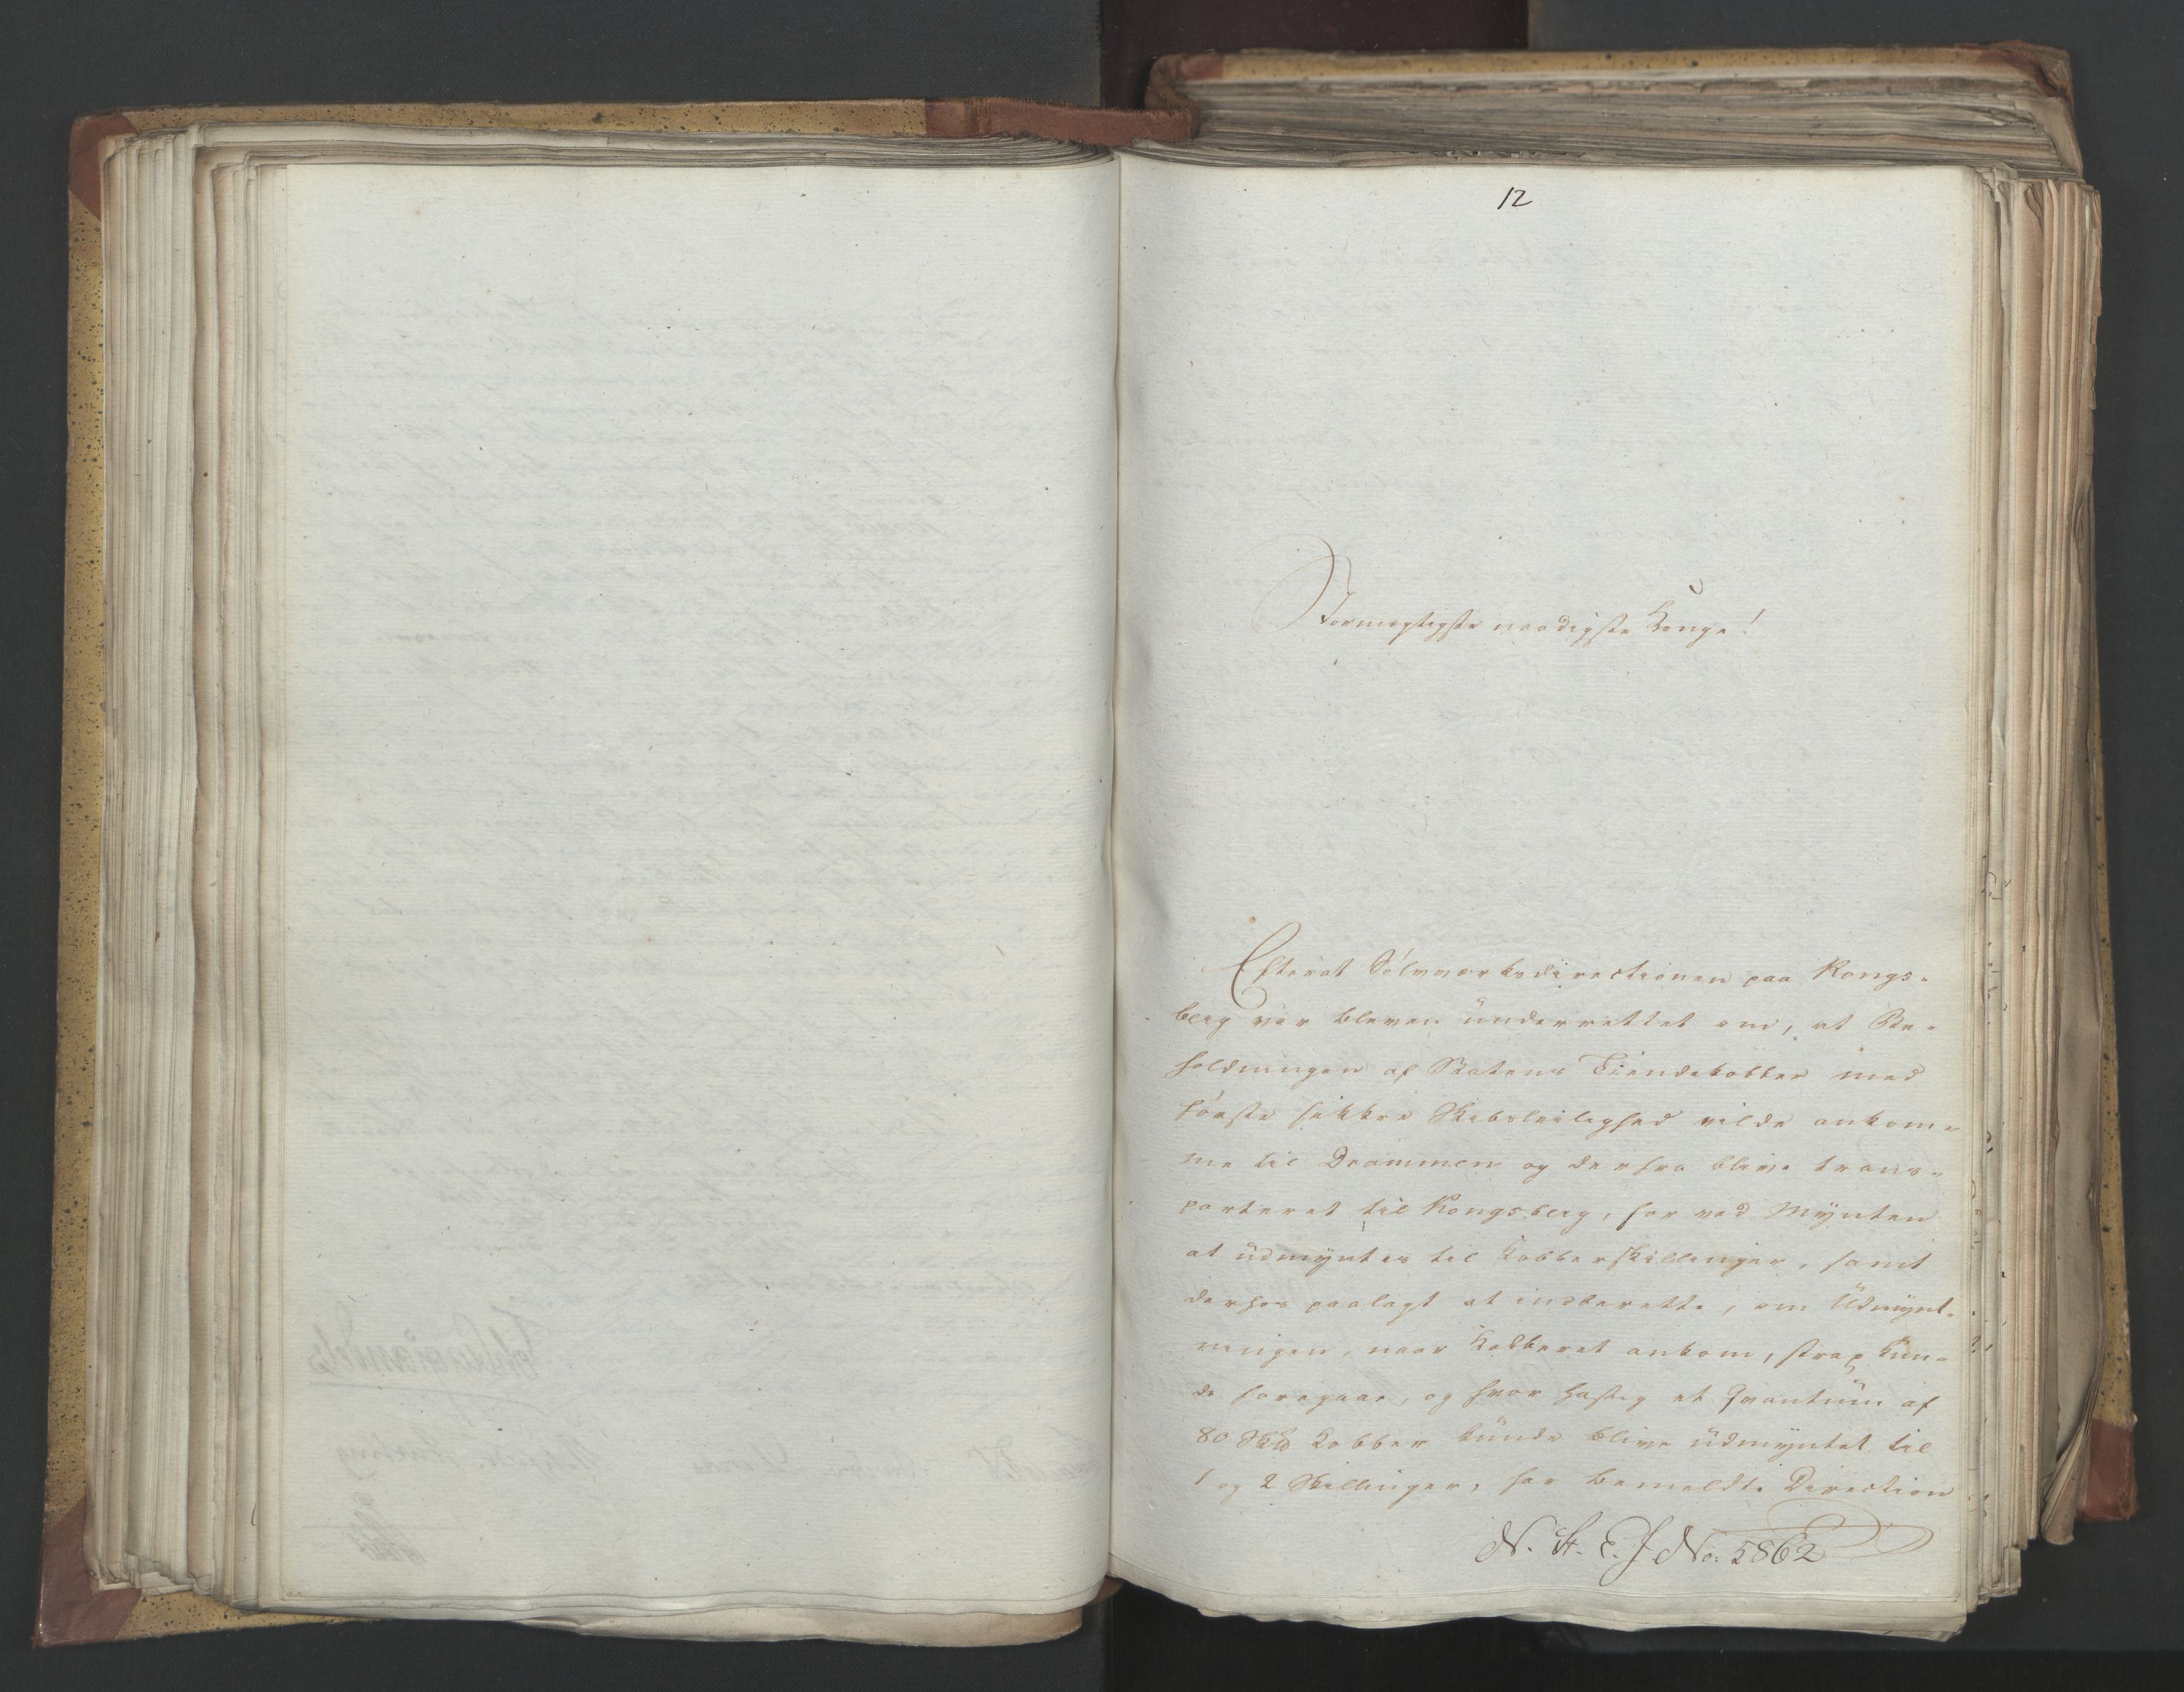 12
Stormægtigste naadigste Konge!
Efterat Sölvværksdirectionen paa Kongs-
berg var bleven ünderrettet om, at Be-
holdningen af Statens Tiendekobber med
förste sikkre Skibsleilighed vilde ankom-
me til Drammen og derfra blive trans-
porteret til Kongsberg, for ved Mÿnten
at üdmÿntes til Kobberskillinger, samt
derhos paalagt at indberette, om Üdmÿnt-
ningen, naar Kobberet ankom, strax kun-
de foregaae, og hvor hastig et Qvantüm af
80 Sk℔ Kobber künde blive üdmÿntet til
1 og 2 Skillinger, har bemeldte Direction
N. St. E. J No. 5862